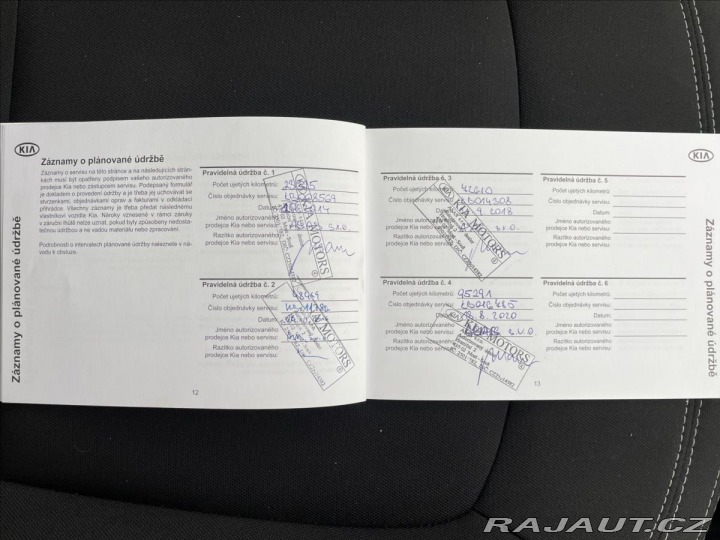 KIA
Záznamy o plánované údržbě
Záznamy o servisu na této stránce a na následujících strán-
kách musí být opatřeny podpisem vašeho autorizovaného
prodejce Kia nebo zástupcem servisu. Podepsaný formulář
je dokladem o provedení údržby a je třeba jej uchovávat se
stvrzenkami, objednávkami oprav a fakturami v odkládací
přihrádce. Všechny záznamy je třeba předat následnému
vlastníkovi vozidla Kia. Nároky vznesené v rámci záruky
v záruční lhůtě nelze uznat, pokud byly způsobeny nedosta-
tečnou údržbou a ne vadou materiálu nebo zpracování.
Podrobnosti o intervalech plánované údržby naleznete v ná-
vodu k obsluze.
Záznamy o plánované údržbě
Pravidelná údržba č. 1
Počet ujetých kilometrů:
Číslo objednávky servisu:
Datum:
Jméno autorizovaného
prodejce Kia nebo servisu: s.r.o.
Razítko autorizovaného
prodejce Kia nebo servisu:
KIA MOTORS
Pravidelná údržba č. 2
Počet ujetých kilometrů:
Číslo objednávky servisu:
Datum:
Jméno autorizovaného
prodejce Kia nebo servisu:
Razítko autorizovaného
prodejce Kia nebo servisu:
KIA MOTORS
12
Pravidelná údržba č. 3
Počet ujetých kilometrů:
Číslo objednávky servisu:
Datum: 9 2018
Jméno autorizovaného
prodejce Kia nebo servisu: s.r.o.
Razítko autorizovaného
prodejce Kia nebo servisu:
KIA MOTORS
Pravidelná údržba č. 4
Počet ujetých kilometrů: 95291
Číslo objednávky servisu:
Datum: 8. 2020
Jméno autorizovaného
prodejce Kia nebo servisu: s.r.o.
Razítko autorizovaného
prodejce Kia nebo servisu:
KIA MOTORS
KIA
Pravidelná údržba č. 5
Počet ujetých kilometrů:
Číslo objednávky servisu:
Datum:
Jméno autorizovaného
prodejce Kia nebo servisu:
Razítko autorizovaného
prodejce Kia nebo servisu:
Pravidelná údržba č. 6
Počet ujetých kilometrů:
Číslo objednávky servisu:
Datum:
Jméno autorizovaného
prodejce Kia nebo servisu:
Razítko autorizovaného
prodejce Kia nebo servisu:
13
Záznamy o plánované údržbě
RAJAUT.CZ